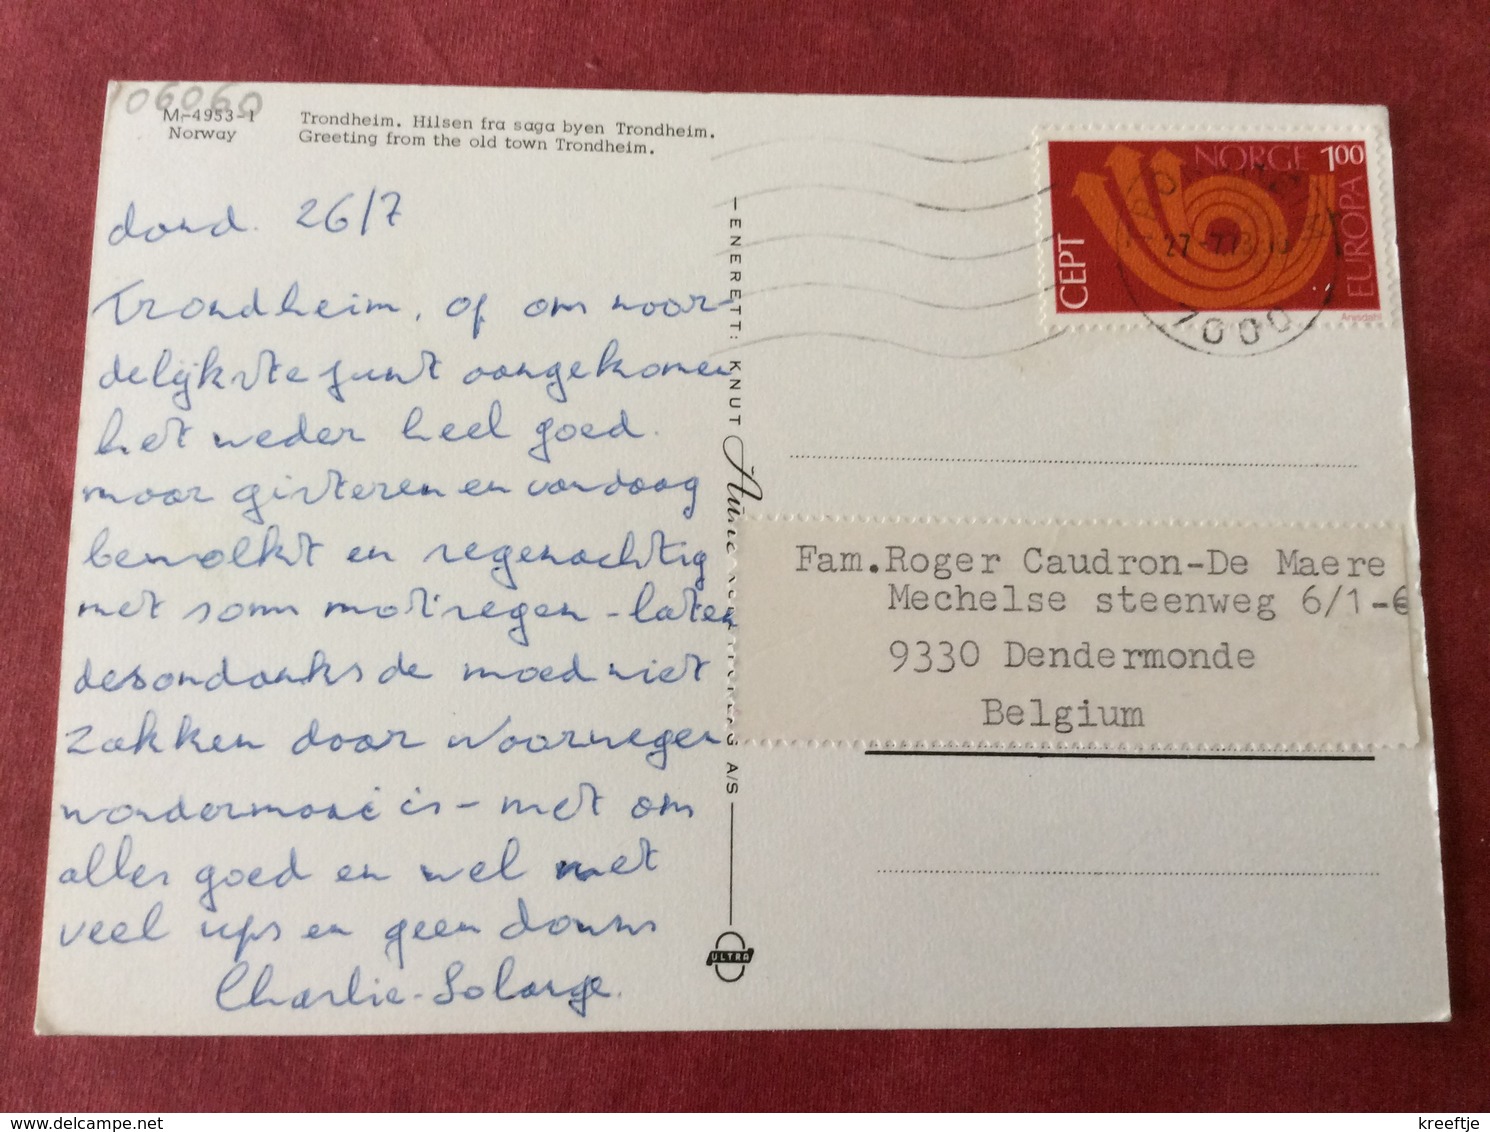 06060
M-4953-1
Norway
Trondheim. Hilsen fra saga byen Trondheim.
Greeting from the old town Trondheim.
dond. 26/7
Trondheim, op om noor-
delijkste punt aangekomen
het weder heel goed.
maar gisteren en vandaag
bewolkt en regenachtig
met soms motregen - laten
desondanks de moed niet
zakken daar Noorwegen
wondermooi is - met om
alles goed en wel met
veel ups en geen downs
Charlie - Solange.
ENERETT: KNUT Aune A/S
ULTRA
NORGE 100
CEPT
EUROPA
Arnsdahl
27-7.73
7000
Fam. Roger Caudron-De Maere
Mechelse steenweg 6/1-6
9330 Dendermonde
Belgium
kreeftje